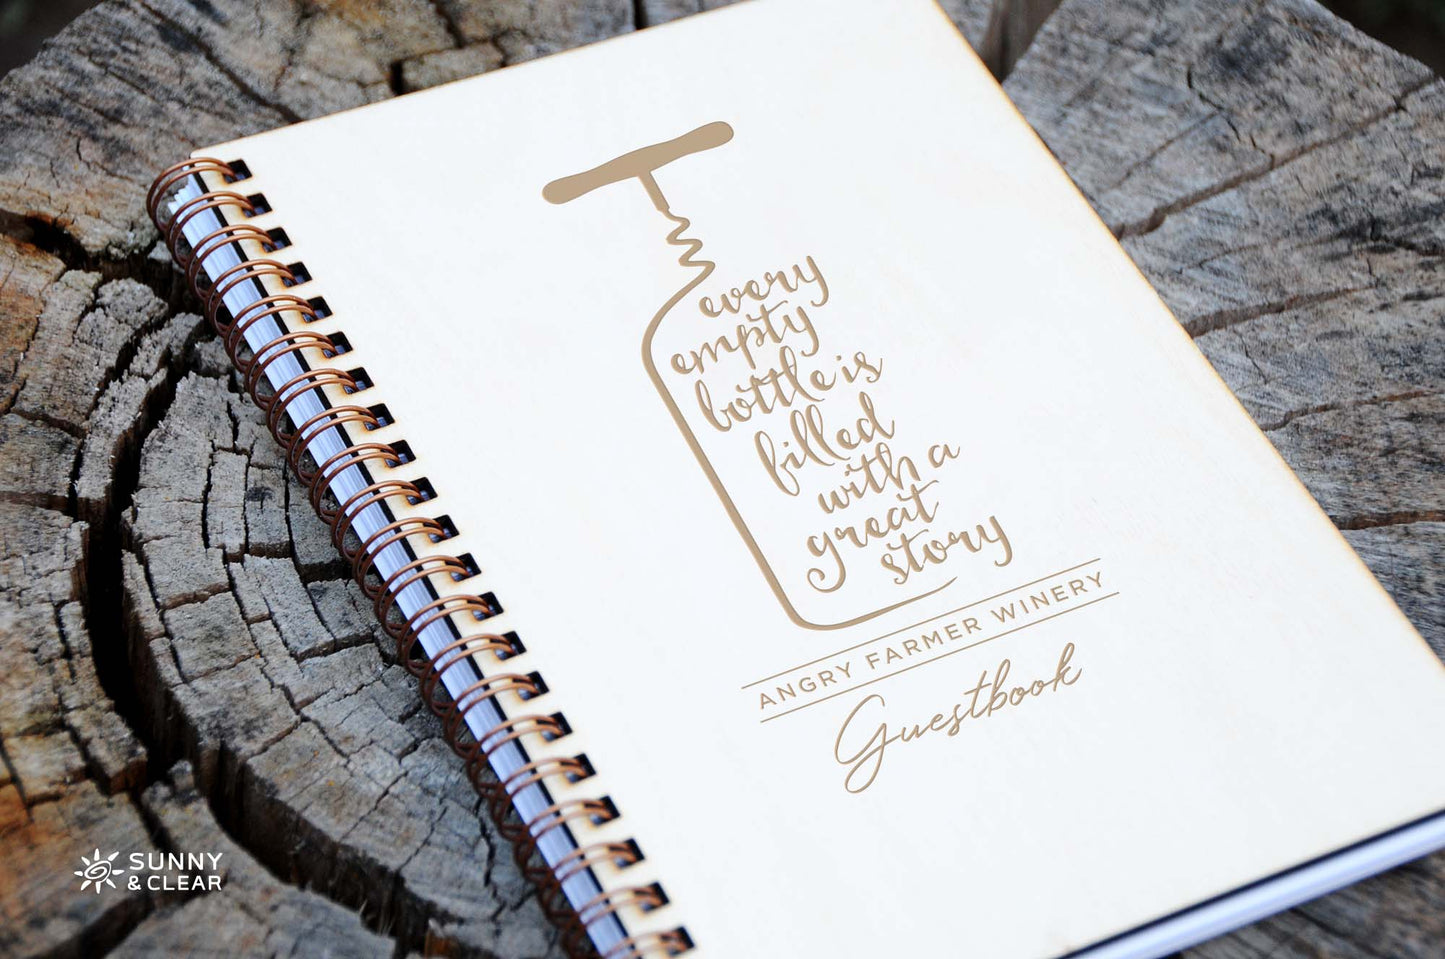 every
empty
bottle is
filled
with a
great
story
ANGRY FARMER WINERY
Guestbook
SUNNY
& CLEAR